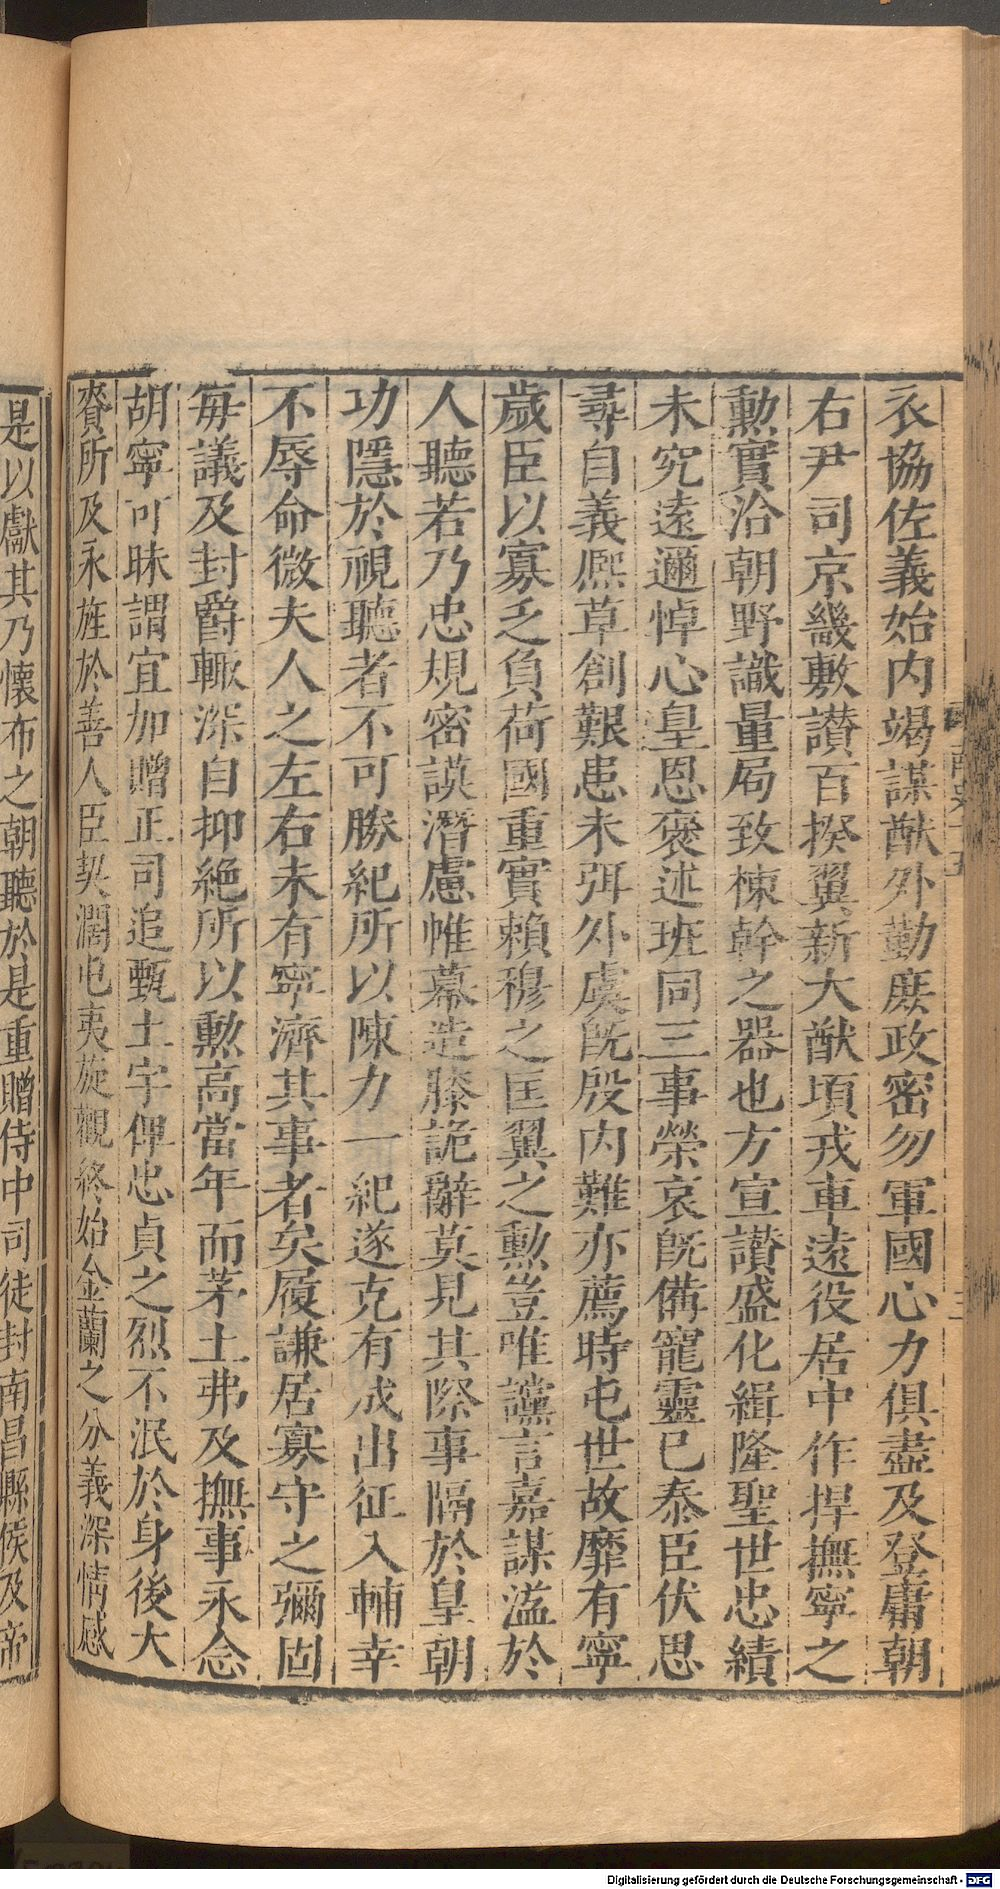 衣協佐義始内竭謀猷外勤庶政密勿軍國心力俱盡及登庸朝
右尹司京畿敷讃百揆翼新大猷頃戎車遠役居中作捍撫寧之
勲實洽朝野識量局致棟幹之器也方宣讃盛化緝隆聖世忠績
未究遠邇悼心皇恩褒述班同三事榮哀既備寵靈已泰臣伏思
尋自義熈草創艱患未弭外虞既殷内難亦薦時屯世故靡有寧
歲臣以寡乏負荷國重實賴穆之匡翼之勲豈唯讜言嘉謀溢於
人聽若乃忠規密謨潛慮帷幕造膝詭辭莫見其際事隔於皇朝
功隱於視聽者不可勝紀所以陳力一紀遂克有成出征入輔幸
不辱命微夫人之左右未有寧濟其事者矣履謙居寡守之彌固
毎議及封爵輙深自抑絶所以勲高當年而茅土弗及撫事永念
胡寧可昧謂宜加贈正司追甄土宇俾忠貞之烈不泯於身後大
賚所及永旌於善人臣契濶屯夷旋觀終始金蘭之分義深情感
是以獻其乃懷布之朝聽於是重贈侍中司徒封南昌縣侯及帝
Digitalisierung gefördert durch die Deutsche Forschungsgemeinschaft - DFG